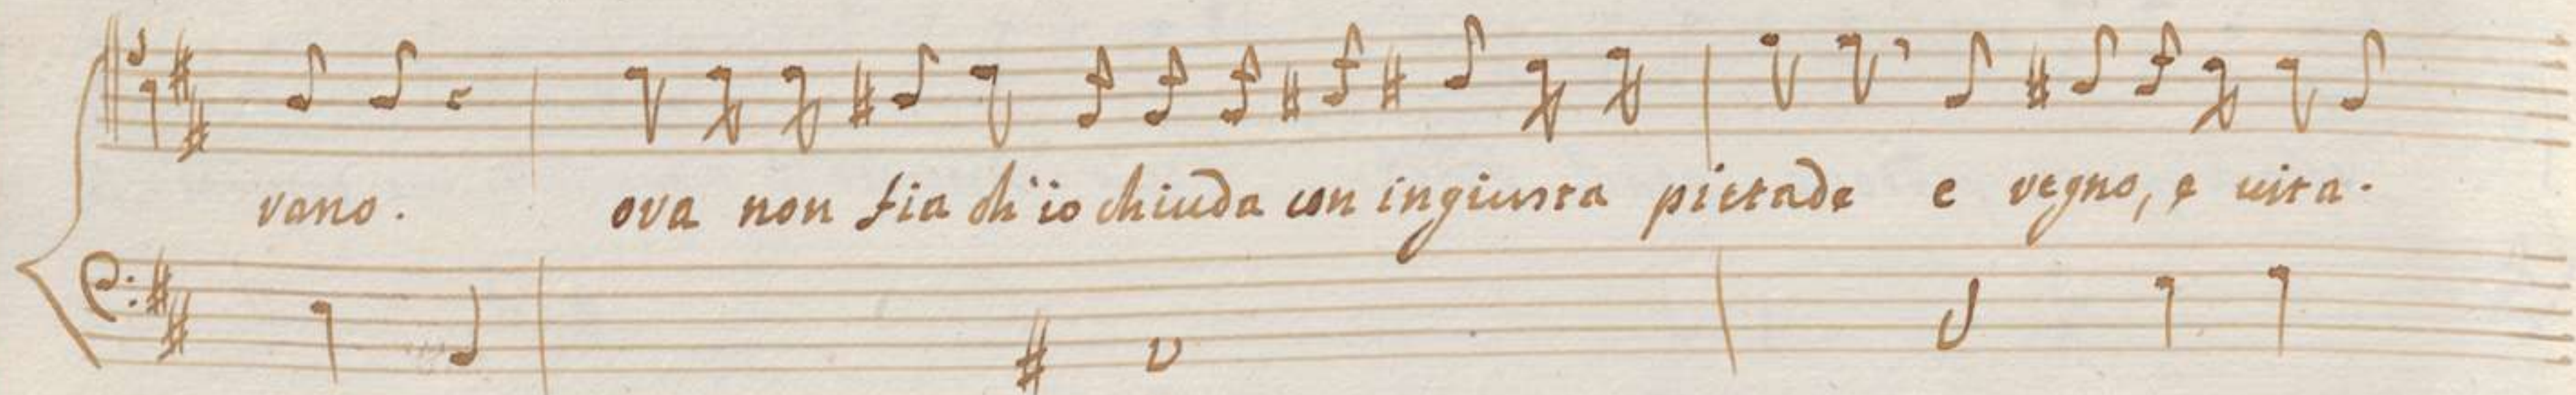 vano. ova non fia ch'io chiuda con ingiusta pietade e vegno, e vita-